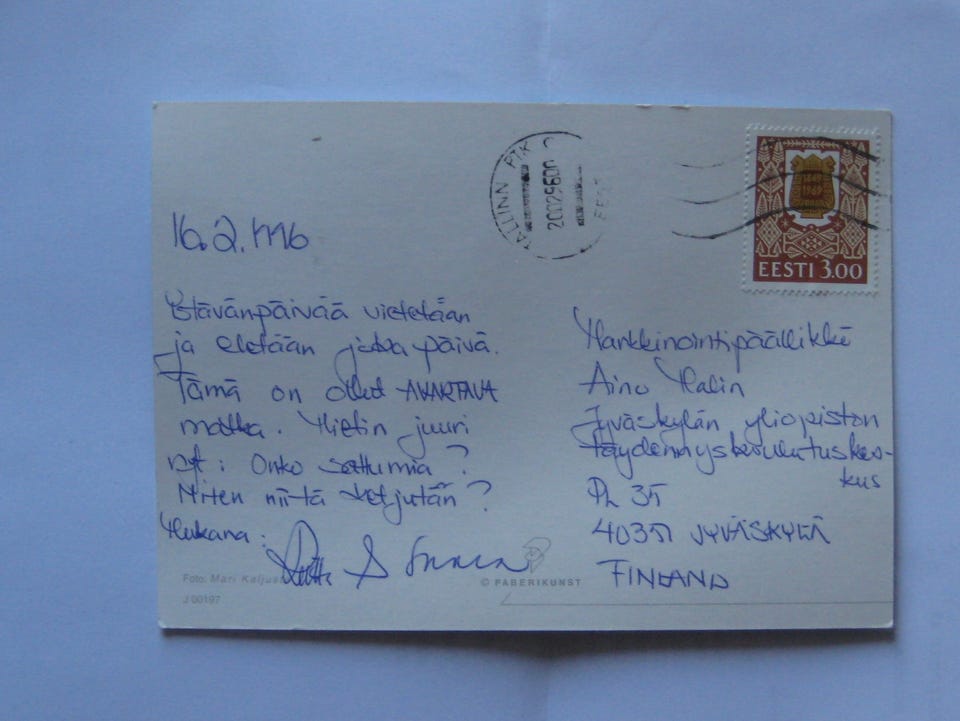 TALLINN PTK
20029600
EESTI
EESTI 3.00
16.2.1996
Ystävänpäivää vietetään
ja eletään joka päivä.
Tämä on ollut AVARTAVA
matka. Mietin juuri
nyt: Onko sattumia?
Miten niitä ketjutan?
Mukana:
Markkinointipäällikkö
Aino Malin
Jyväskylän yliopiston
täydennyskoulutuskes-
kus
PL 35
40351 JYVÄSKYLÄ
FINLAND
Foto: Mari Kaljus
© PABERIKUNST
J 00197